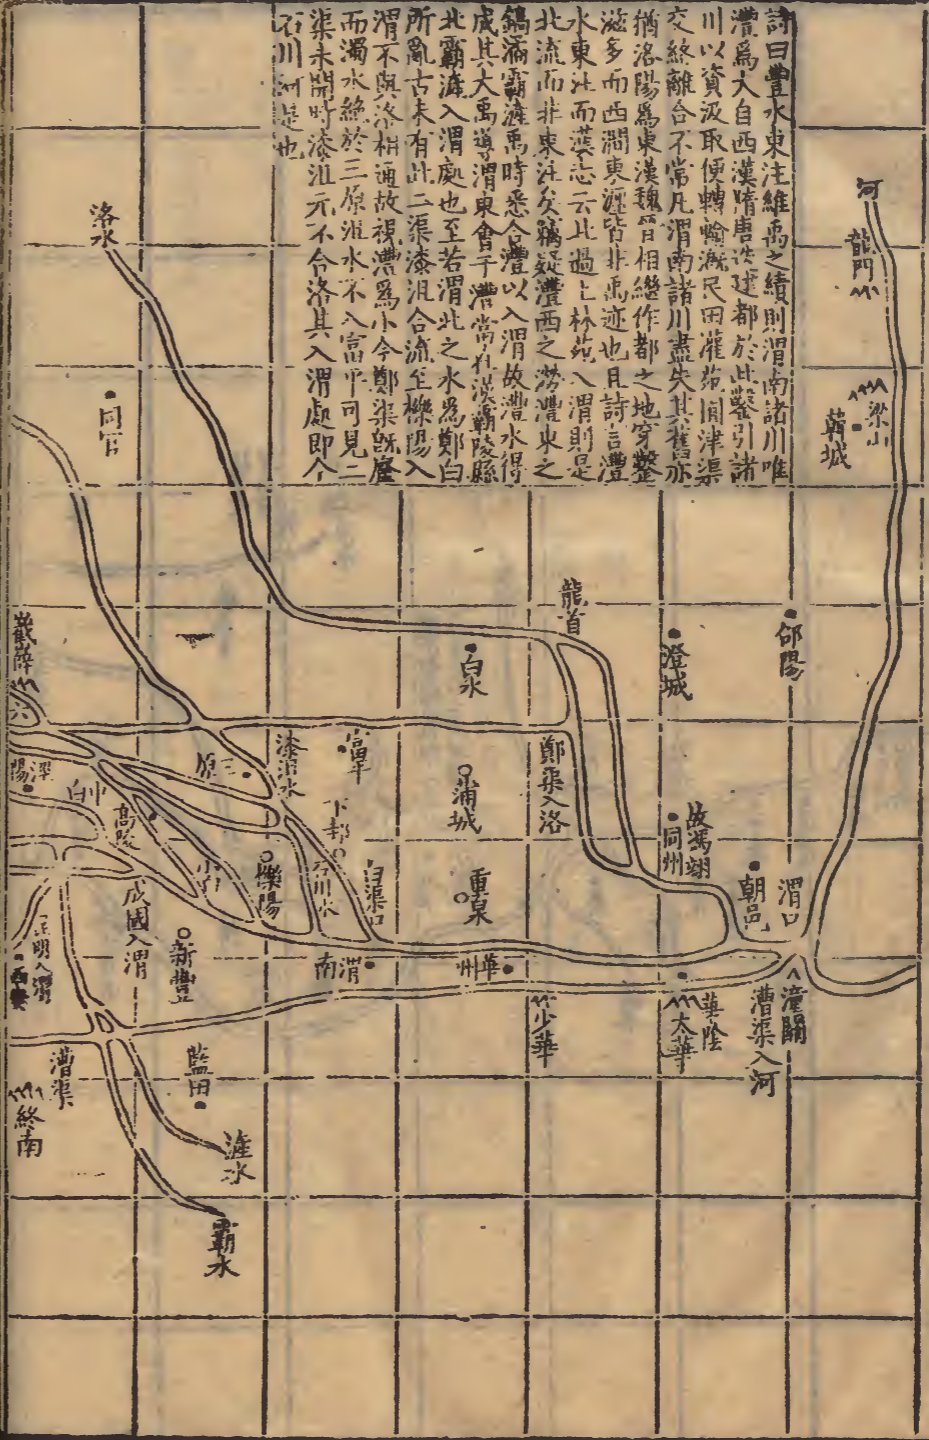 詩曰豐水東注維禹之績則渭南諸川唯
灃爲大自西漢隋唐迭建都於此鑿引諸
川以資汲取便轉輸漑民田灌苑囿津渠
交絡離合不常凡渭南諸川盡失其舊亦
猶洛陽爲東漢魏晉相繼作都之地穿鑿
滋多而西澗東瀍皆非禹迹也且詩言灃
水東注而漢志云北過上林苑入渭則是
北流而非東注矣竊疑灃西之澇灃東之
鎬潏霸滻禹時悉合灃以入渭故灃水得
成其大禹導渭東會于灃當在漢霸陵縣
北霸滻入渭處也至若渭北之水爲鄭白
所亂古未有此二渠漆沮合流至櫟陽入
渭不與洛相通故視灃爲小今鄭渠旣廢
而濁水絶於三原沮水不入富平可見二
渠未開時漆沮元不合洛其入渭處即今
石川河是也
河
龍門
梁山
韓城
洛水
同官
龍首
郃陽
澄城
白水
嶻嶭
鄭渠入洛
富平
漆沮水
三原
蒲城
下邽
中白
高陵
故馮翊
同州
朝邑
渭口
重泉
白渠口
石川水
櫟陽
小白
成國入渭
新豐
渭南
華州
潼關
漕渠入河
華陰
太華
少華
藍田
漕渠
終南
滻水
霸水